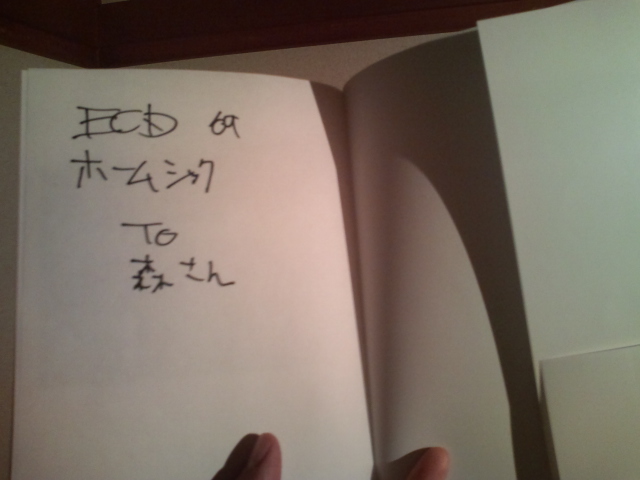 ECD の
ホームシック
To
森さん